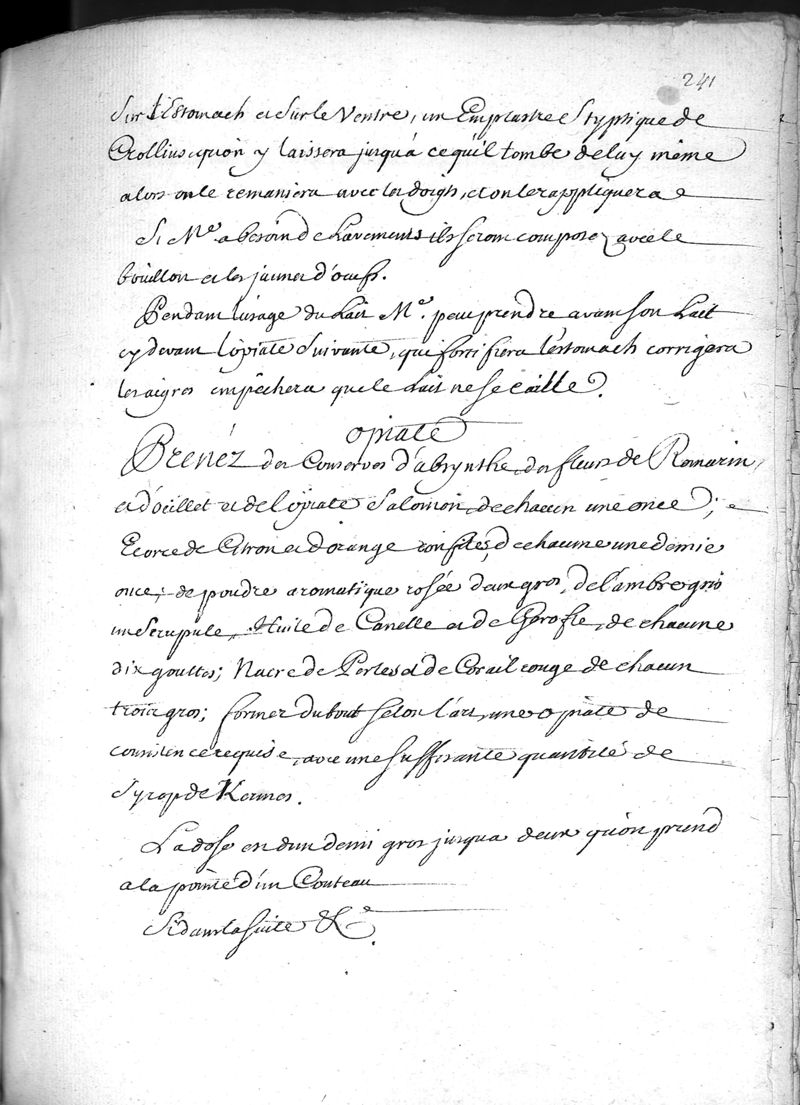 241
Sur l'Estomach et sur le Ventre, un Emplastre Styptique de
Crollius, qu'on y laissera jusqu'a ce qu'il tombe de luy même
alors on le remaniera avec les doigts, et on le rappliquera
Si Me. a besoin de Lavements ils seront composez avec le
bouillon et les jaunes d'oeufs.
Pendant l'usage du Lait Me. peut prendre avant son Lait
cy devant l'opiate suivante, qui fortifiera l'estomach corrigera
les aigres empêchera que le Lait ne se caille.
opiate
Prenéz des Conserves d'absynthe, des fleurs de Romarin,
et d'oeillet et de l'opiate Salomon, de chacun une once;
Ecorce de Citron et d'orange confites, de chacune une demie
once; de poudre aromatique rosée deux gros, de l'ambre gris
un scrupule, Huile de Canelle et de Gerofle, de chacune
dix gouttes; Nacre de Perles et de Corail rouge de chacun
trois gros; former du tout selon l'art, une opiate de
consistence requise, avec une suffisante quantité de
Syrop de Kermes.
La dose est d'un demi gros jusqu'a deux qu'on prend
a la pointe d'un Couteau
Si dans la suite &c.